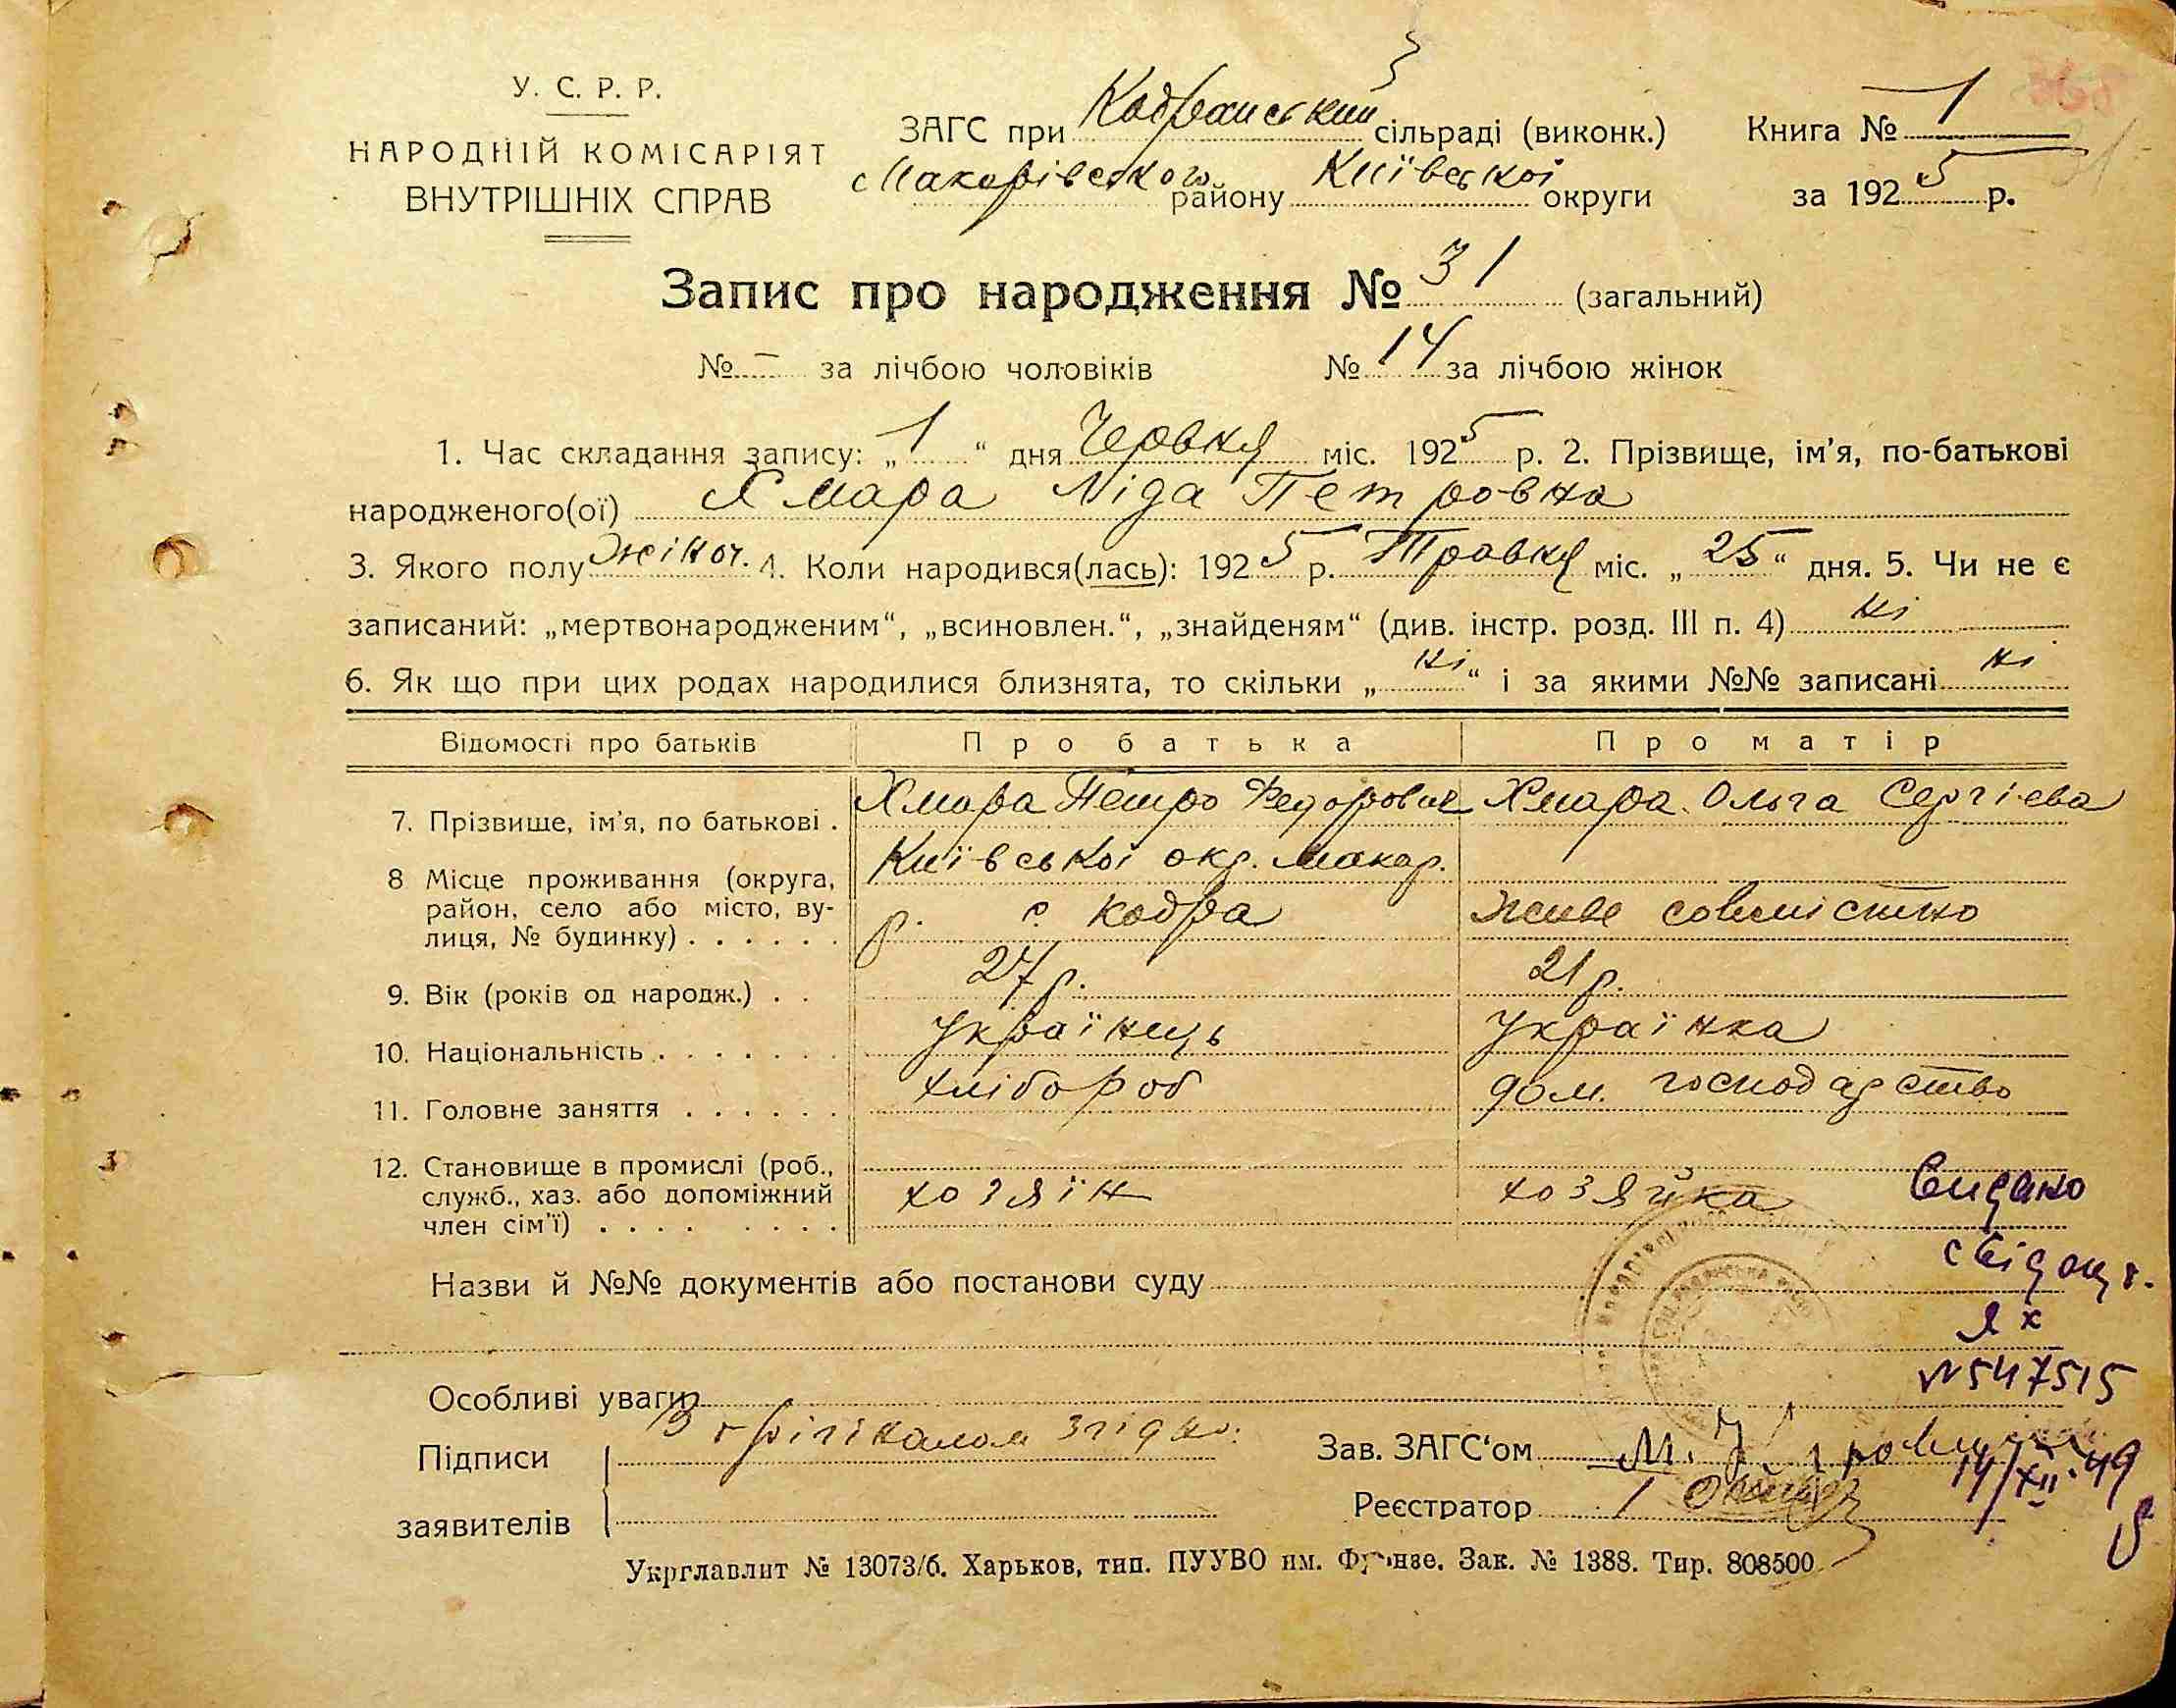 У. С. Р. Р.
НАРОДНІЙ КОМІСАРІЯТ
ВНУТРІШНІХ СПРАВ
ЗАГС при Кодранський сільраді (виконк.)
Макарівського району Київської округи
Книга № 1
за 1925 р.
Запис про народження № 31 (загальний)
№ – за лічбою чоловіків № 14 за лічбою жінок
1. Час складання запису: „1“ дня Червня міс. 1925 р. 2. Прізвище, ім'я, по-батькові
народженого(ої) Хмара Ліда Петровна
3. Якого полу жіноч. 4. Коли народився(лась): 1925 р. Травня міс. „25“ дня. 5. Чи не є
записаний: „мертвонародженим“, „всиновлен.“, „знайденям“ (див. інстр. розд. III п. 4) ні
6. Як що при цих родах народилися близнята, то скільки „ні“ і за якими №№ записані ні
Відомості про батьків Про батька Про матір
7. Прізвище, ім'я, по батькові . Хмара Петро Федорович Хмара Ольга Сергієва
8 Місце проживання (округа, район, село або місто, вулиця, № будинку) . . . . . . Київської окр. Макар. р. с Кодра живе совмістно
9. Вік (років од народж.) . . 27 р. 21 р.
10. Національність . . . . . . . Українець Українка
11. Головне заняття . . . . . . хлібороб дом. господарство
12. Становище в промислі (роб., служб., хаз. або допоміжний член сім'ї) . . . . . . . . хозяїн хозяйка
Видано
свідоц.
ЯХ
№547515
14/XII.49
Назви й №№ документів або постанови суду
Особливі уваги
Підписи
заявителів
З орігіналом згідно.
Зав. ЗАГС'ом М.
Реєстратор
Укрглавлит № 13073/б. Харьков, тип. ПУУВО им. Фрунзе. Зак. № 1388. Тир. 808500